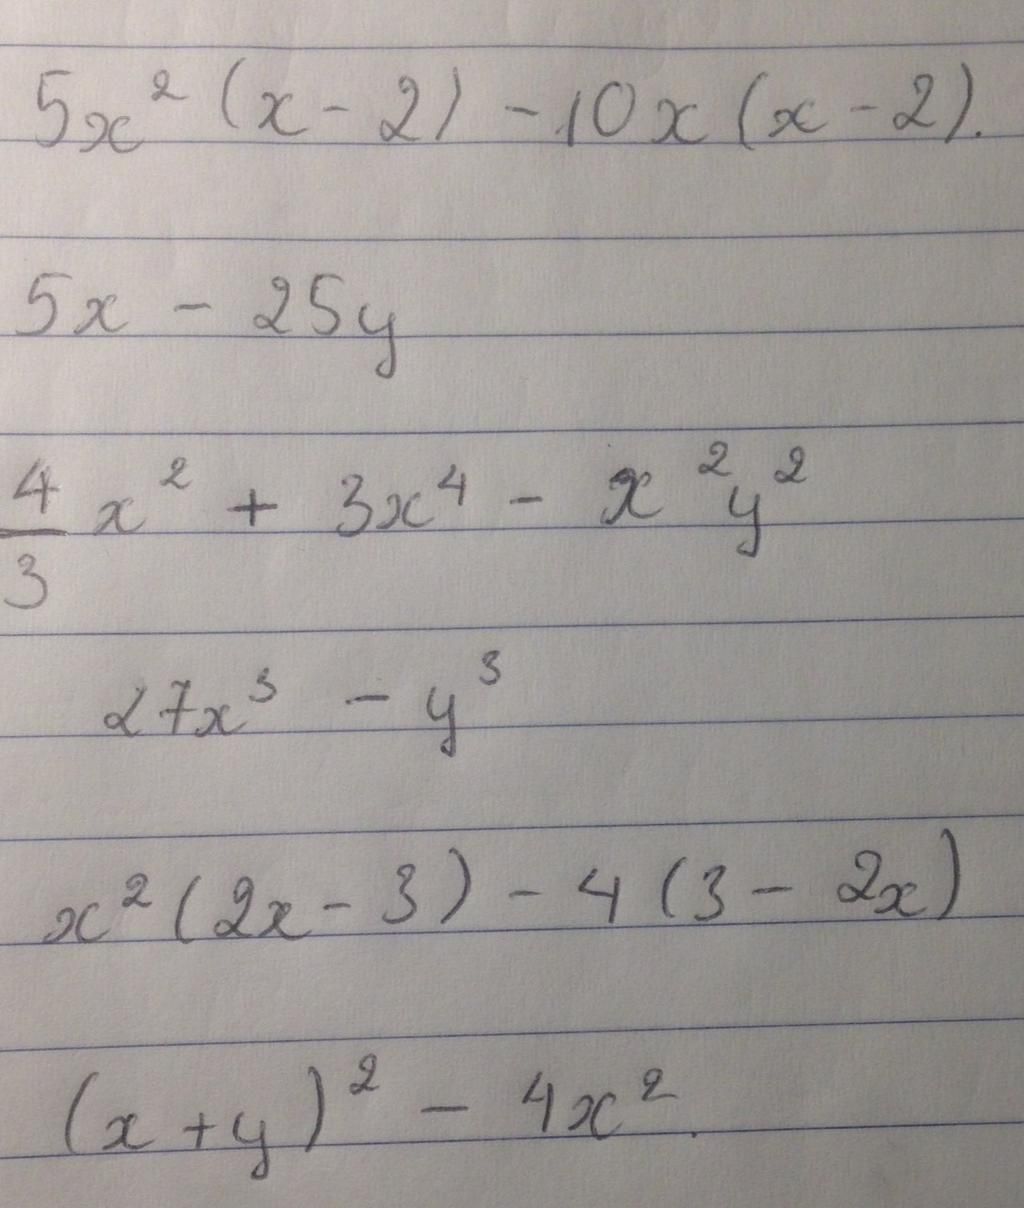 5x² (x - 2) - 10x (x - 2).
5x - 25y
4/3 x² + 3x⁴ - x²y²
27x³ - y³
x² (2x - 3) - 4 (3 - 2x)
(x + y)² - 4x².